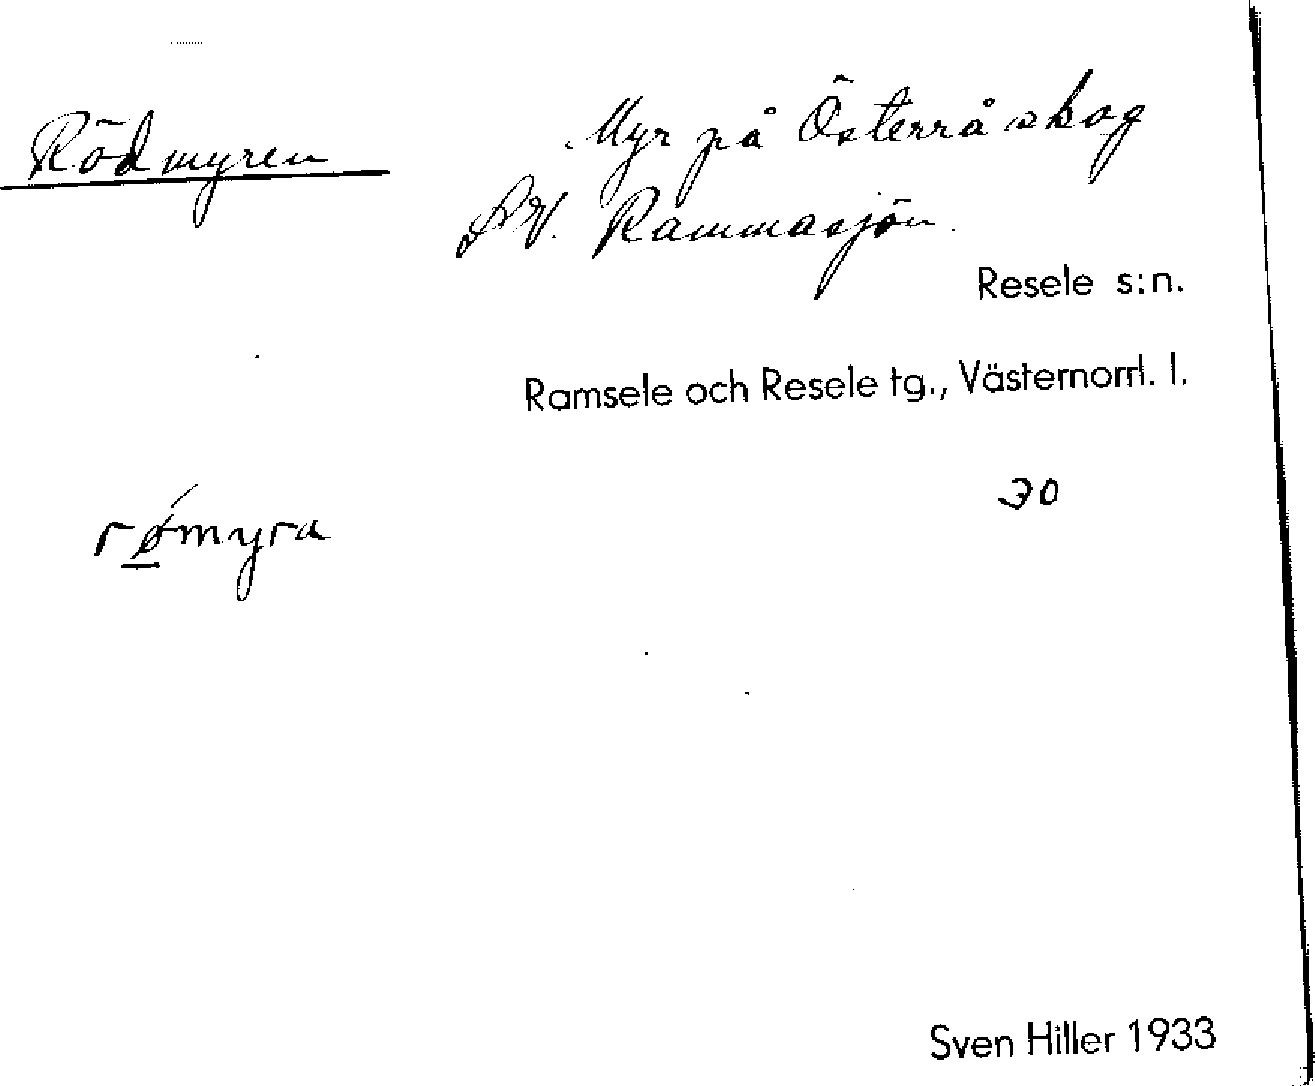 Rödmyren
Myr på Österrå skog
SV. Rammasjön.
Resele s:n.
Ramsele och Resele tg., Västernorrl. l.
30
rømyra
Sven Hiller 1933